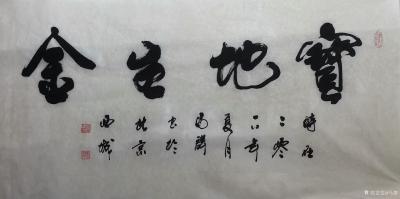 寶地生金
時在
二零
年
夏月
書於
北京
西城